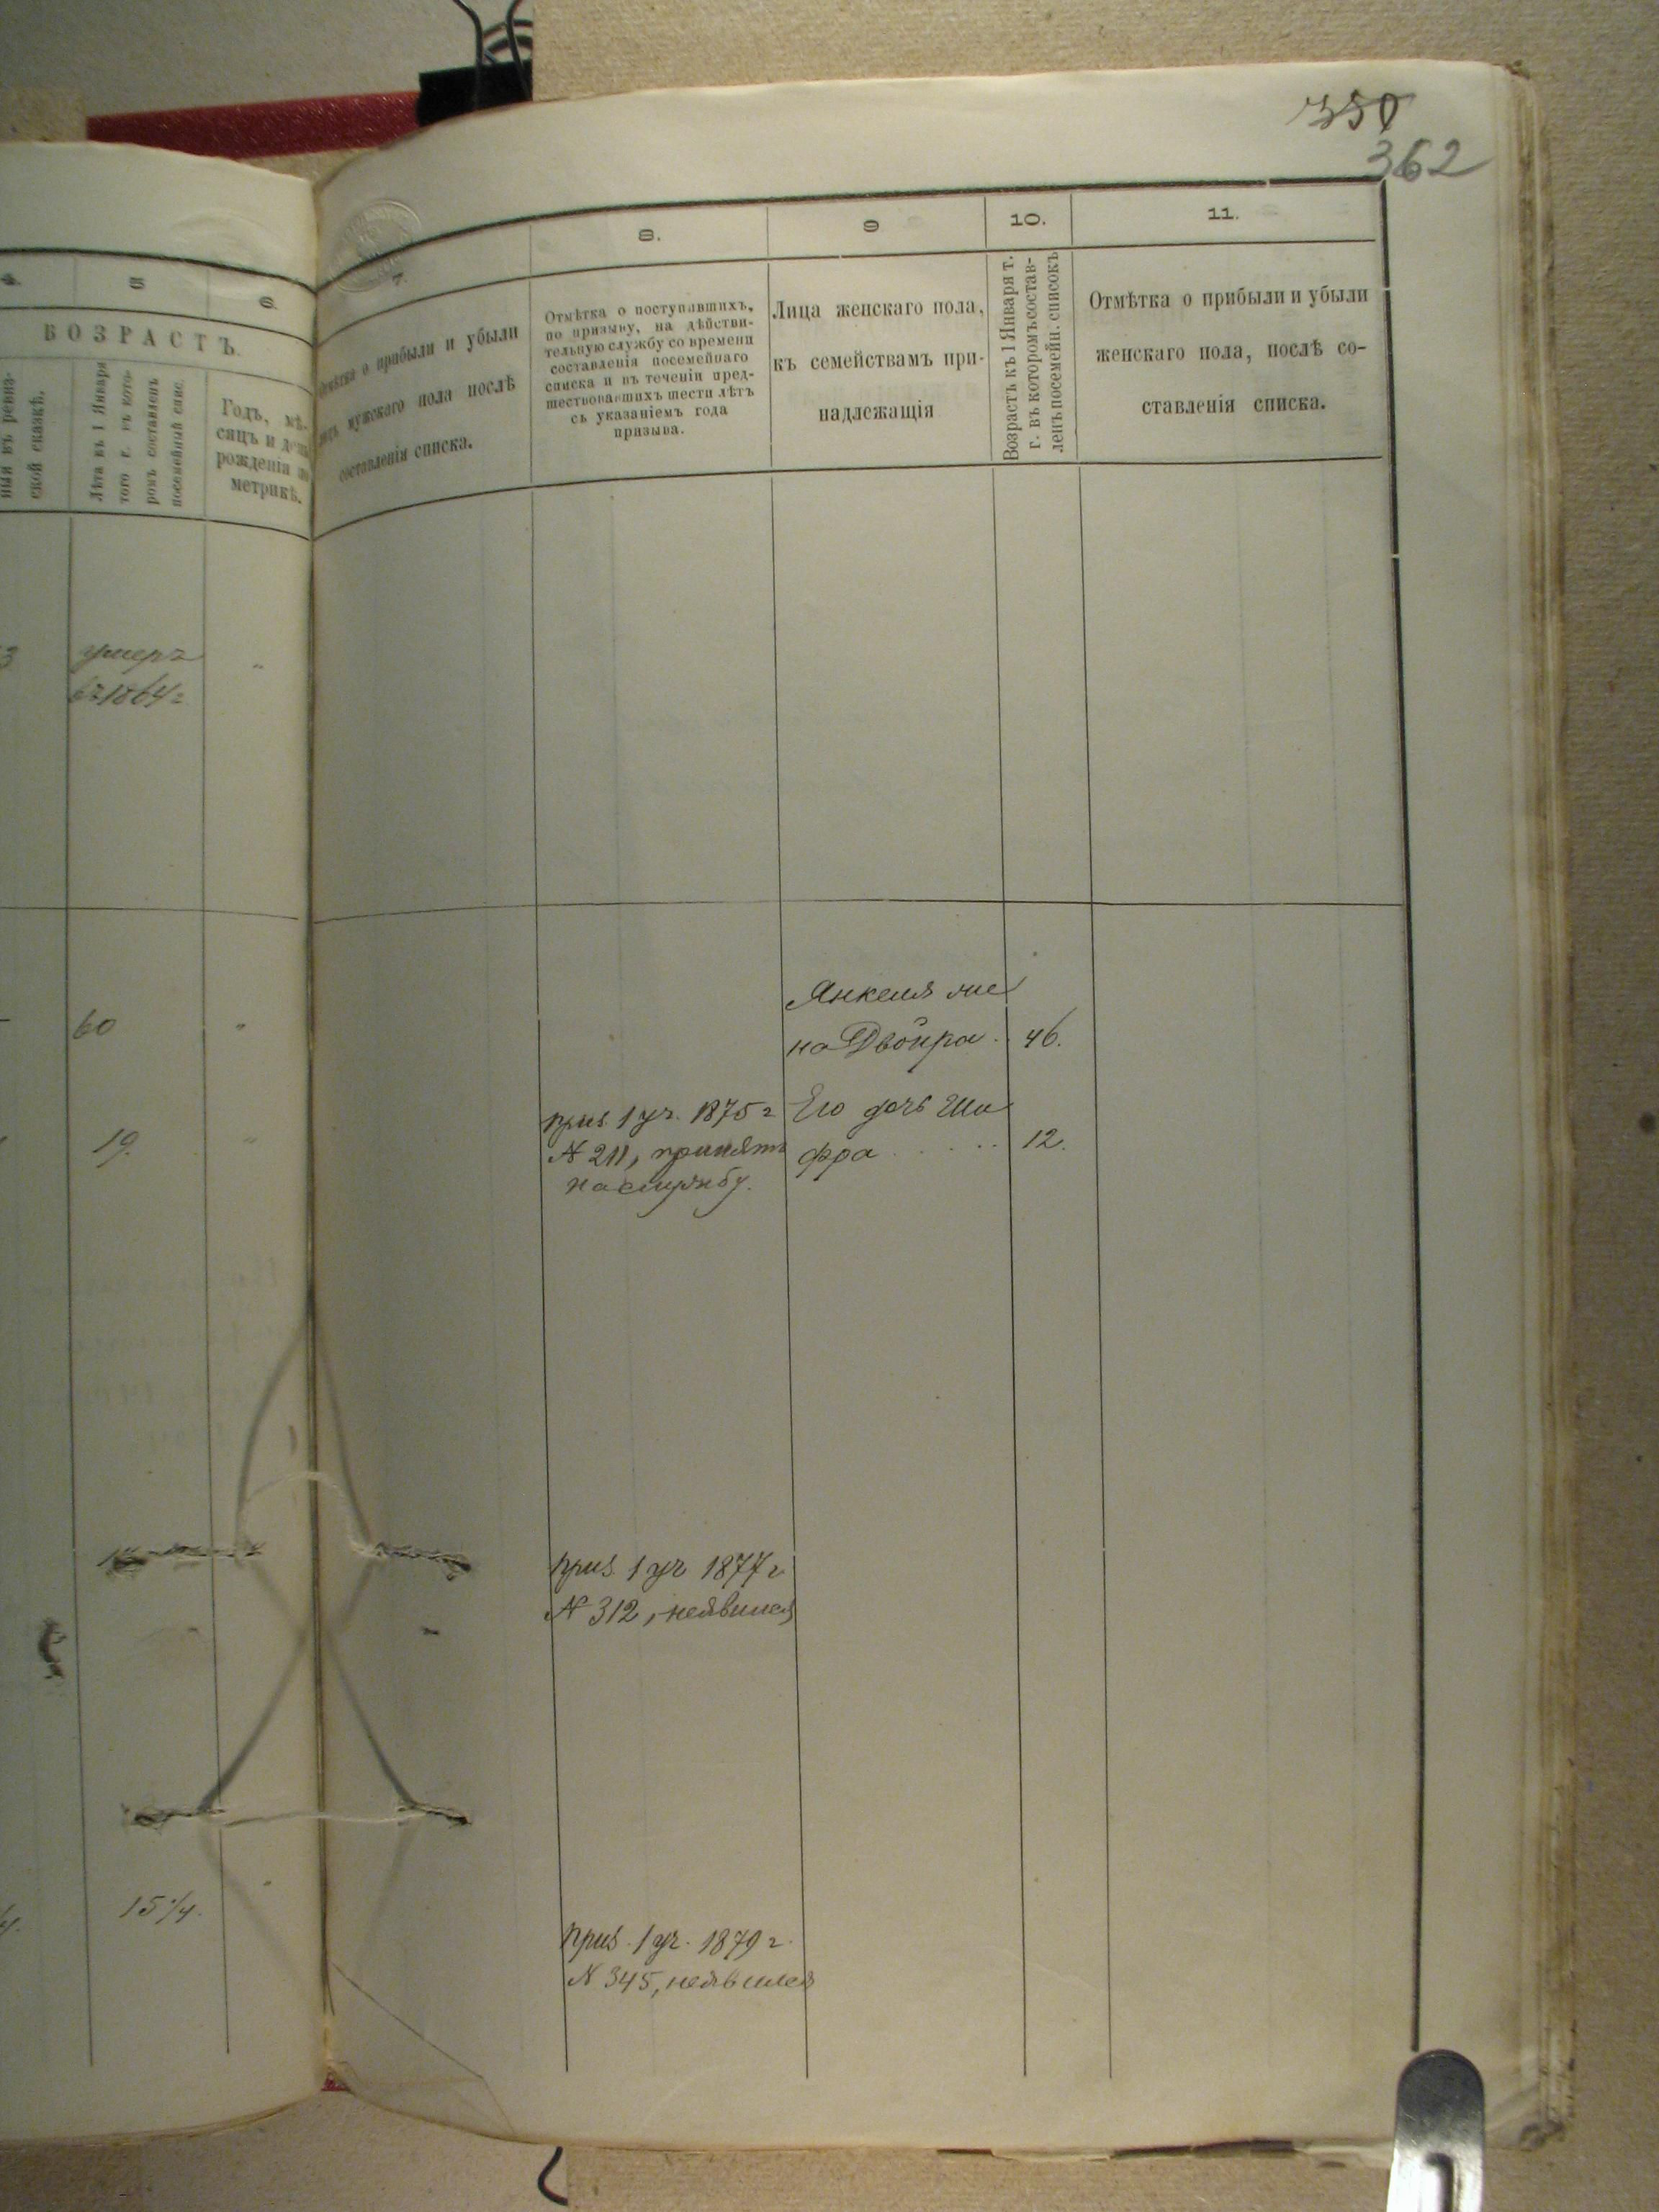 350
362
4.
5
6.
ВОЗРАСТЪ.
ской сказкѣ.
Лѣта къ 1 Января
того г. въ кото-
ромъ составленъ
посемейный спис.
Годъ, мѣ-
сяцъ и день
рожденія по
метрикѣ.
умеръ
въ 1864 г
"
60
"
19.
"
15 1/4.
"
7.
Отмѣтка о прибыли и убыли
мужского пола послѣ
составленія списка.
8.
Отмѣтка о поступавшихъ,
по призыву, на дѣйстви-
тельную службу со времени
составленія посемейнаго
списка и въ теченіи пред-
шествовавшихъ шести лѣтъ
съ указаніемъ года
призыва.
9
Лица женскаго пола,
къ семействамъ при-
надлежащія
10.
Возрастъ къ 1 Января т.
г. въ которомъ состав-
ленъ посемейн. списокъ
11.
Отмѣтка о прибыли и убыли
женскаго пола, послѣ со-
ставленія списка.
Янкеля же
на Двойра . 46.
приз. 1 уч. 1875 г
№ 211, принятъ
на службу.
Его дочь Ши
фра . . . . 12.
приз. 1 уч 1877 г
№ 312, неявился
приз. 1 уч. 1879 г.
№ 345, неявился